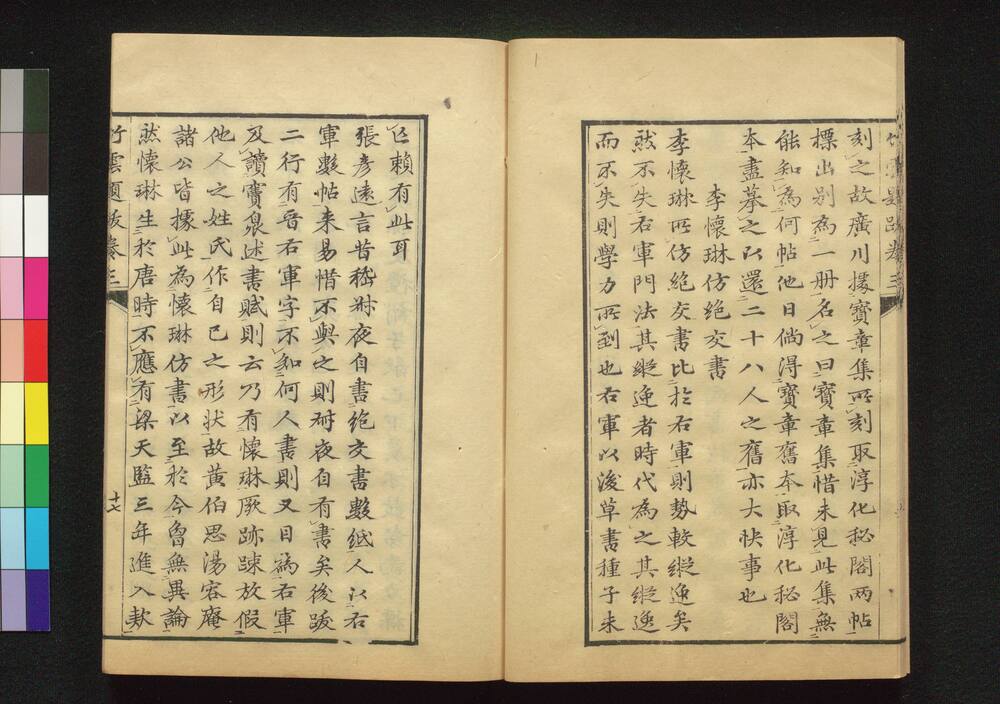 竹雲題跋卷三
刻之故廣川據寶章集所刻取淳化秘閣兩帖
標出别為一冊名之曰寶章集惜未見此集無
能知為何帖他日倘得寶章舊本取淳化秘閣
本盡摹之以還二十八人之舊亦大快事也
李懷琳仿絕交書
李懷琳所仿絕交書比於右軍則勢較縱逸矣
然不失右軍門法其縱逸者時代為之其縱逸
而不失則學力所到也右軍以後草書種子未
亡賴有此耳
張彥遠言昔嵇叔夜自書絕交書數紙人以右
軍數帖来易惜不與之則叔夜自有書矣後跋
二行有晉右軍字不知何人書則又目為右軍
及讀竇臮述書賦則云乃有懷琳厥跡疎放假
他人之姓氏作自己之形狀故黃伯思湯容庵
諸公皆據此為懷琳仿書以至於今曾無異論
然懷琳生於唐時不應有梁天監三年進入款
竹雲題跋卷三
十七